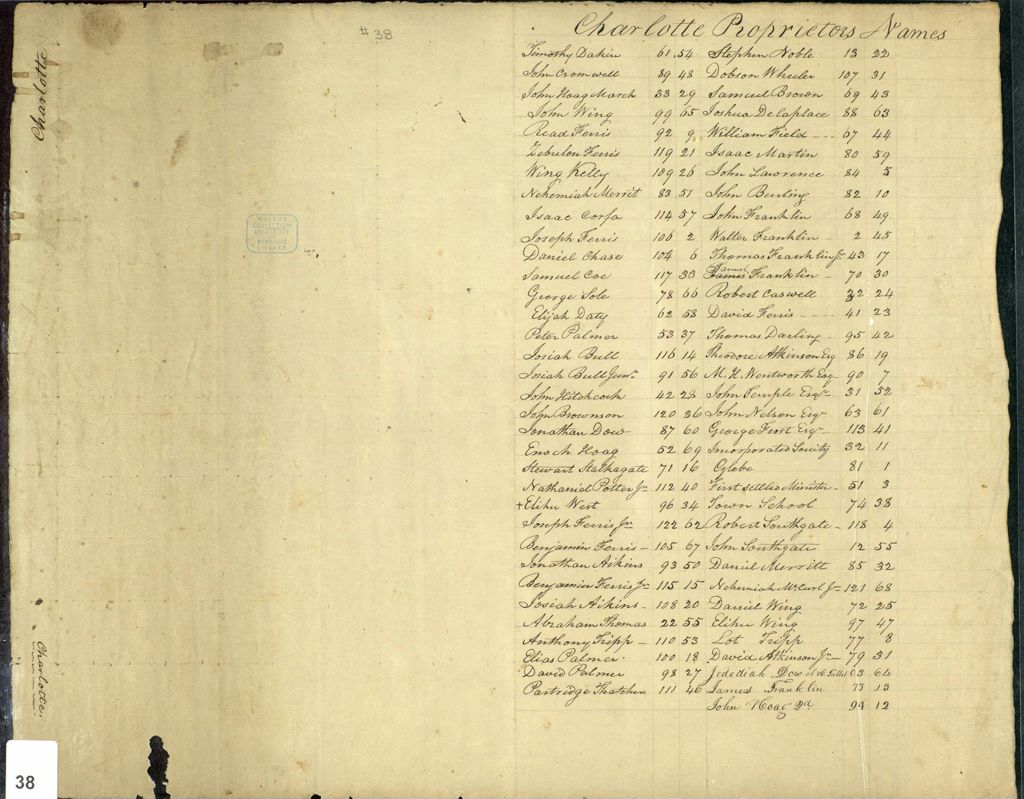 # 38
Charlotte
Charlotte.
WILBUR
COLLECTION
UNIVERSITY
OF
VERMONT
LIBRARY
Charlotte Proprietors Names
Timothy Dakin 61 54 Stephen Noble 13 22
John Cromwell 89 48 Dobson Wheeler 107 31
John Hoag March 33 29 Samuel Brown 69 43
John Wing 99 65 Joshua Delaplace 88 63
Read Ferris 92 9 William Field - - - 67 44
Zebulon Ferris 119 21 Isaac Martin 80 59
Wing Kelly 109 26 John Lawrence 84 5
Nehemiah Merrit 83 51 John Burling 82 10
Isaac Corsa 114 57 John Franklin 68 49
Joseph Ferris 106 2 Walter Franklin - 2 45
Daniel Chase 104 6 Thomas Franklin Jr 43 17
Samuel Coe 117 33 Samuel Franklin - 70 30
George Sole 78 66 Robert Caswell 22 24
Elijah Daty 62 58 David Ferris - - - - 41 23
Peter Palmer 53 37 Thomas Darling - 95 42
Josiah Bull 116 14 Theodore Atkinson Esq 86 19
Josiah Bull Junr 91 56 M. H. Wentworth Esq 90 7
John Hitchcock 42 28 John Temple Esqr 31 52
John Brownson 120 36 John Nelson Esqr 63 61
Jonathan Dow 87 60 George Frost Esqr 113 41
Enoch Hoag 52 69 Incorporated Society 32 11
Stewart Stalkagate 71 16 Glebe 81 1
Nathaniel Potter Jr 112 40 First settled Minister - 51 3
+ Elihu West 96 34 Town School 74 38
Joseph Ferris Jr 122 62 Robert Southgate - 118 4
Benjamin Ferris - 105 67 John Southgate 12 55
Jonathan Aikins 93 50 Daniel Merritt 85 32
Benjamin Ferris Jr 115 15 Nehemiah Jr 121 68
Josiah Aikins - 108 20 Daniel Wing 72 25
Abraham Thomas 22 55 Elihu Wing 97 47
Anthony Tripp - 110 53 Lot Tripp 77 8
Elias Palmer 100 18 David Atkinson Jr - 79 31
David Palmer 98 27 Jedediah Dow 63 64
Partridge Thatcher 111 46 James Franklin 73 13
John Hoag 2d 94 12
38